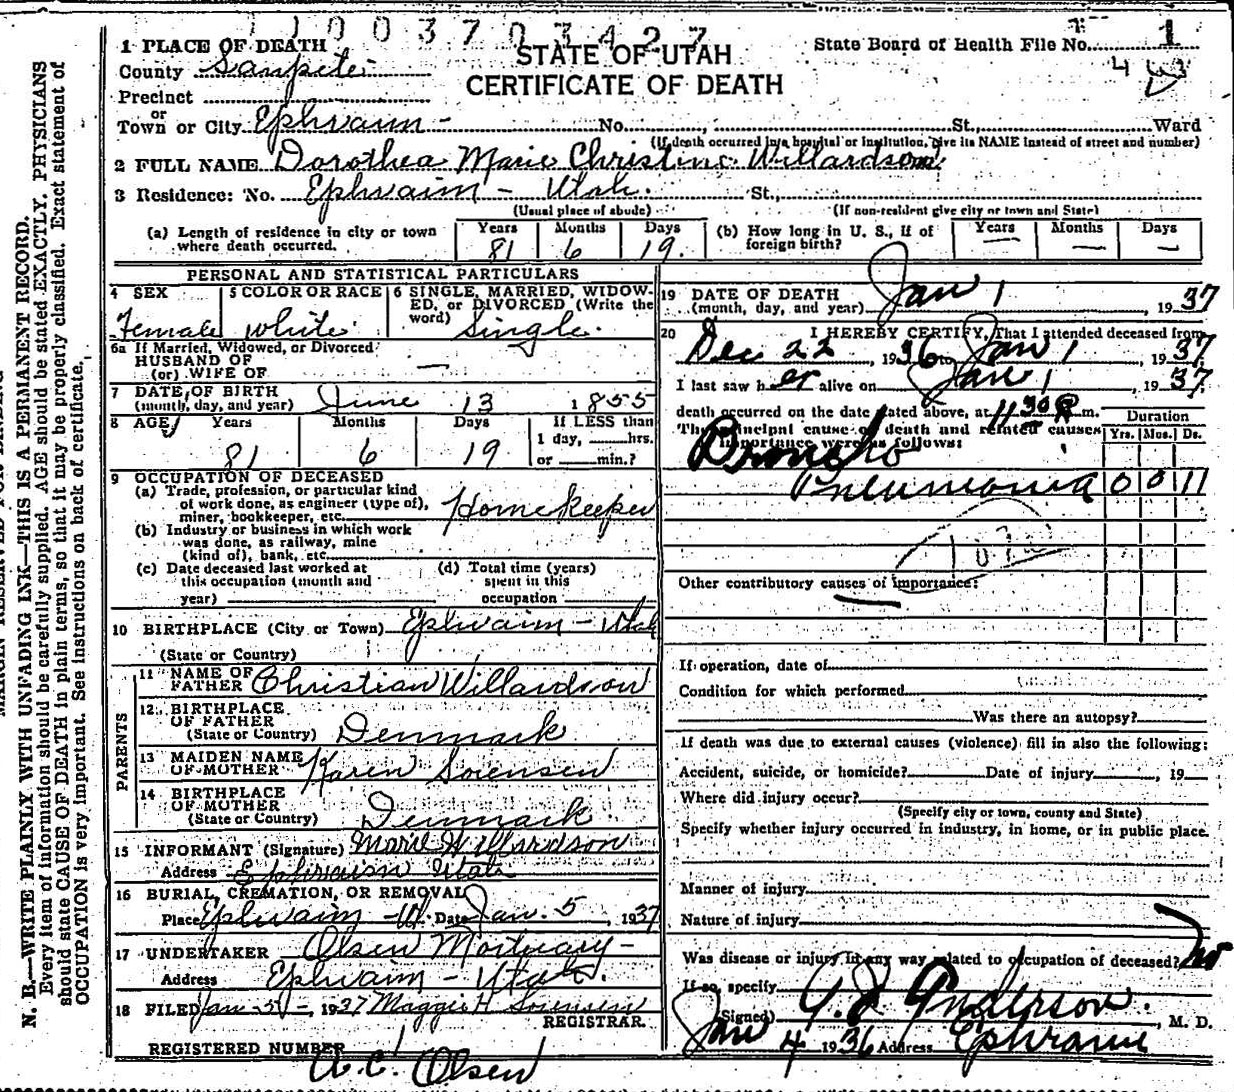 1 0 0 3 7 0 3 4 2 7
1 PLACE OF DEATH
STATE OF UTAH
CERTIFICATE OF DEATH
State Board of Health File No. 1
County Sanpete
Precinct
or
Town or City Ephraim - No. , St., Ward
(If death occurred in a hospital or institution, give its NAME instead of street and number)
2 FULL NAME Dorothea Marie Christine Willardson
3 Residence: No. Ephraim - Utah. St.,
(Usual place of abode) (If non-resident give city or town and State)
(a) Length of residence in city or town where death occurred. Years 81 Months 6 Days 19. (b) How long in U. S., if of foreign birth? Years — Months — Days —
PERSONAL AND STATISTICAL PARTICULARS
4 SEX Female
5 COLOR OR RACE white
6 SINGLE, MARRIED, WIDOW-
ED, or DIVORCED (Write the
word) Single.
6a If Married, Widowed, or Divorced
HUSBAND OF
(or) WIFE OF —
7 DATE OF BIRTH
(month, day, and year) June 13 1855
8 AGE Years 81 Months 6 Days 19 If LESS than
1 day, hrs.
or min.?
9 OCCUPATION OF DECEASED
(a) Trade, profession, or particular kind
of work done, as engineer (type of),
miner, bookkeeper, etc. Homekeeper
(b) Industry or business in which work
was done, as railway, mine
(kind of), bank, etc.
(c) Date deceased last worked at
this occupation (month and
year)
(d) Total time (years)
spent in this
occupation
10 BIRTHPLACE (City or Town) Ephraim - Utah
(State or Country)
PARENTS
11 NAME OF
FATHER Christian Willardson
12. BIRTHPLACE
OF FATHER
(State or Country) Denmark
13 MAIDEN NAME
OF MOTHER Karen Sorensen
14 BIRTHPLACE
OF MOTHER
(State or Country) Denmark
15 INFORMANT (Signature) Marie Willardson
Address Ephraim Utah
16 BURIAL, CREMATION, OR REMOVAL
Place Ephraim - Ut. Date Jan. 5, 1937
17 UNDERTAKER Olsen Mortuary -
Address Ephraim - Utah.
18 FILED Jan - 5 -, 1937 Maggie H Sorensen
REGISTRAR.
REGISTERED NUMBER 1
A. C. Olsen
19 DATE OF DEATH
(month, day, and year) Jan 1 1937
20 I HEREBY CERTIFY, That I attended deceased from
Dec 22, 1936 to Jan 1, 1937
I last saw her alive on Jan 1, 1937
death occurred on the date stated above, at 11 30 P m.
The principal cause of death and related causes
importance were as follows:
Duration
Yrs. Mos. Ds.
Broncho
Pneumonia 0 0 11
107a
Other contributory causes of importance:
—
If operation, date of
Condition for which performed
Was there an autopsy?
If death was due to external causes (violence) fill in also the following:
Accident, suicide, or homicide? Date of injury , 19
Where did injury occur?
(Specify city or town, county and State)
Specify whether injury occurred in industry, in home, or in public place.
Manner of injury
Nature of injury
Was disease or injury in any way related to occupation of deceased? No
If so, specify
(Signed) Anderson, M. D.
Jan 4 1936 Address Ephraim
N. B.—WRITE PLAINLY WITH UNFADING INK—THIS IS A PERMANENT RECORD.
Every item of information should be carefully supplied. AGE should be stated EXACTLY. PHYSICIANS
should state CAUSE OF DEATH in plain terms, so that it may be properly classified. Exact statement of
OCCUPATION is very important. See instructions on back of certificate.